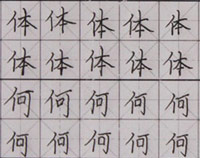 体体体体体
体体体体体
何何何何何
何何何何何